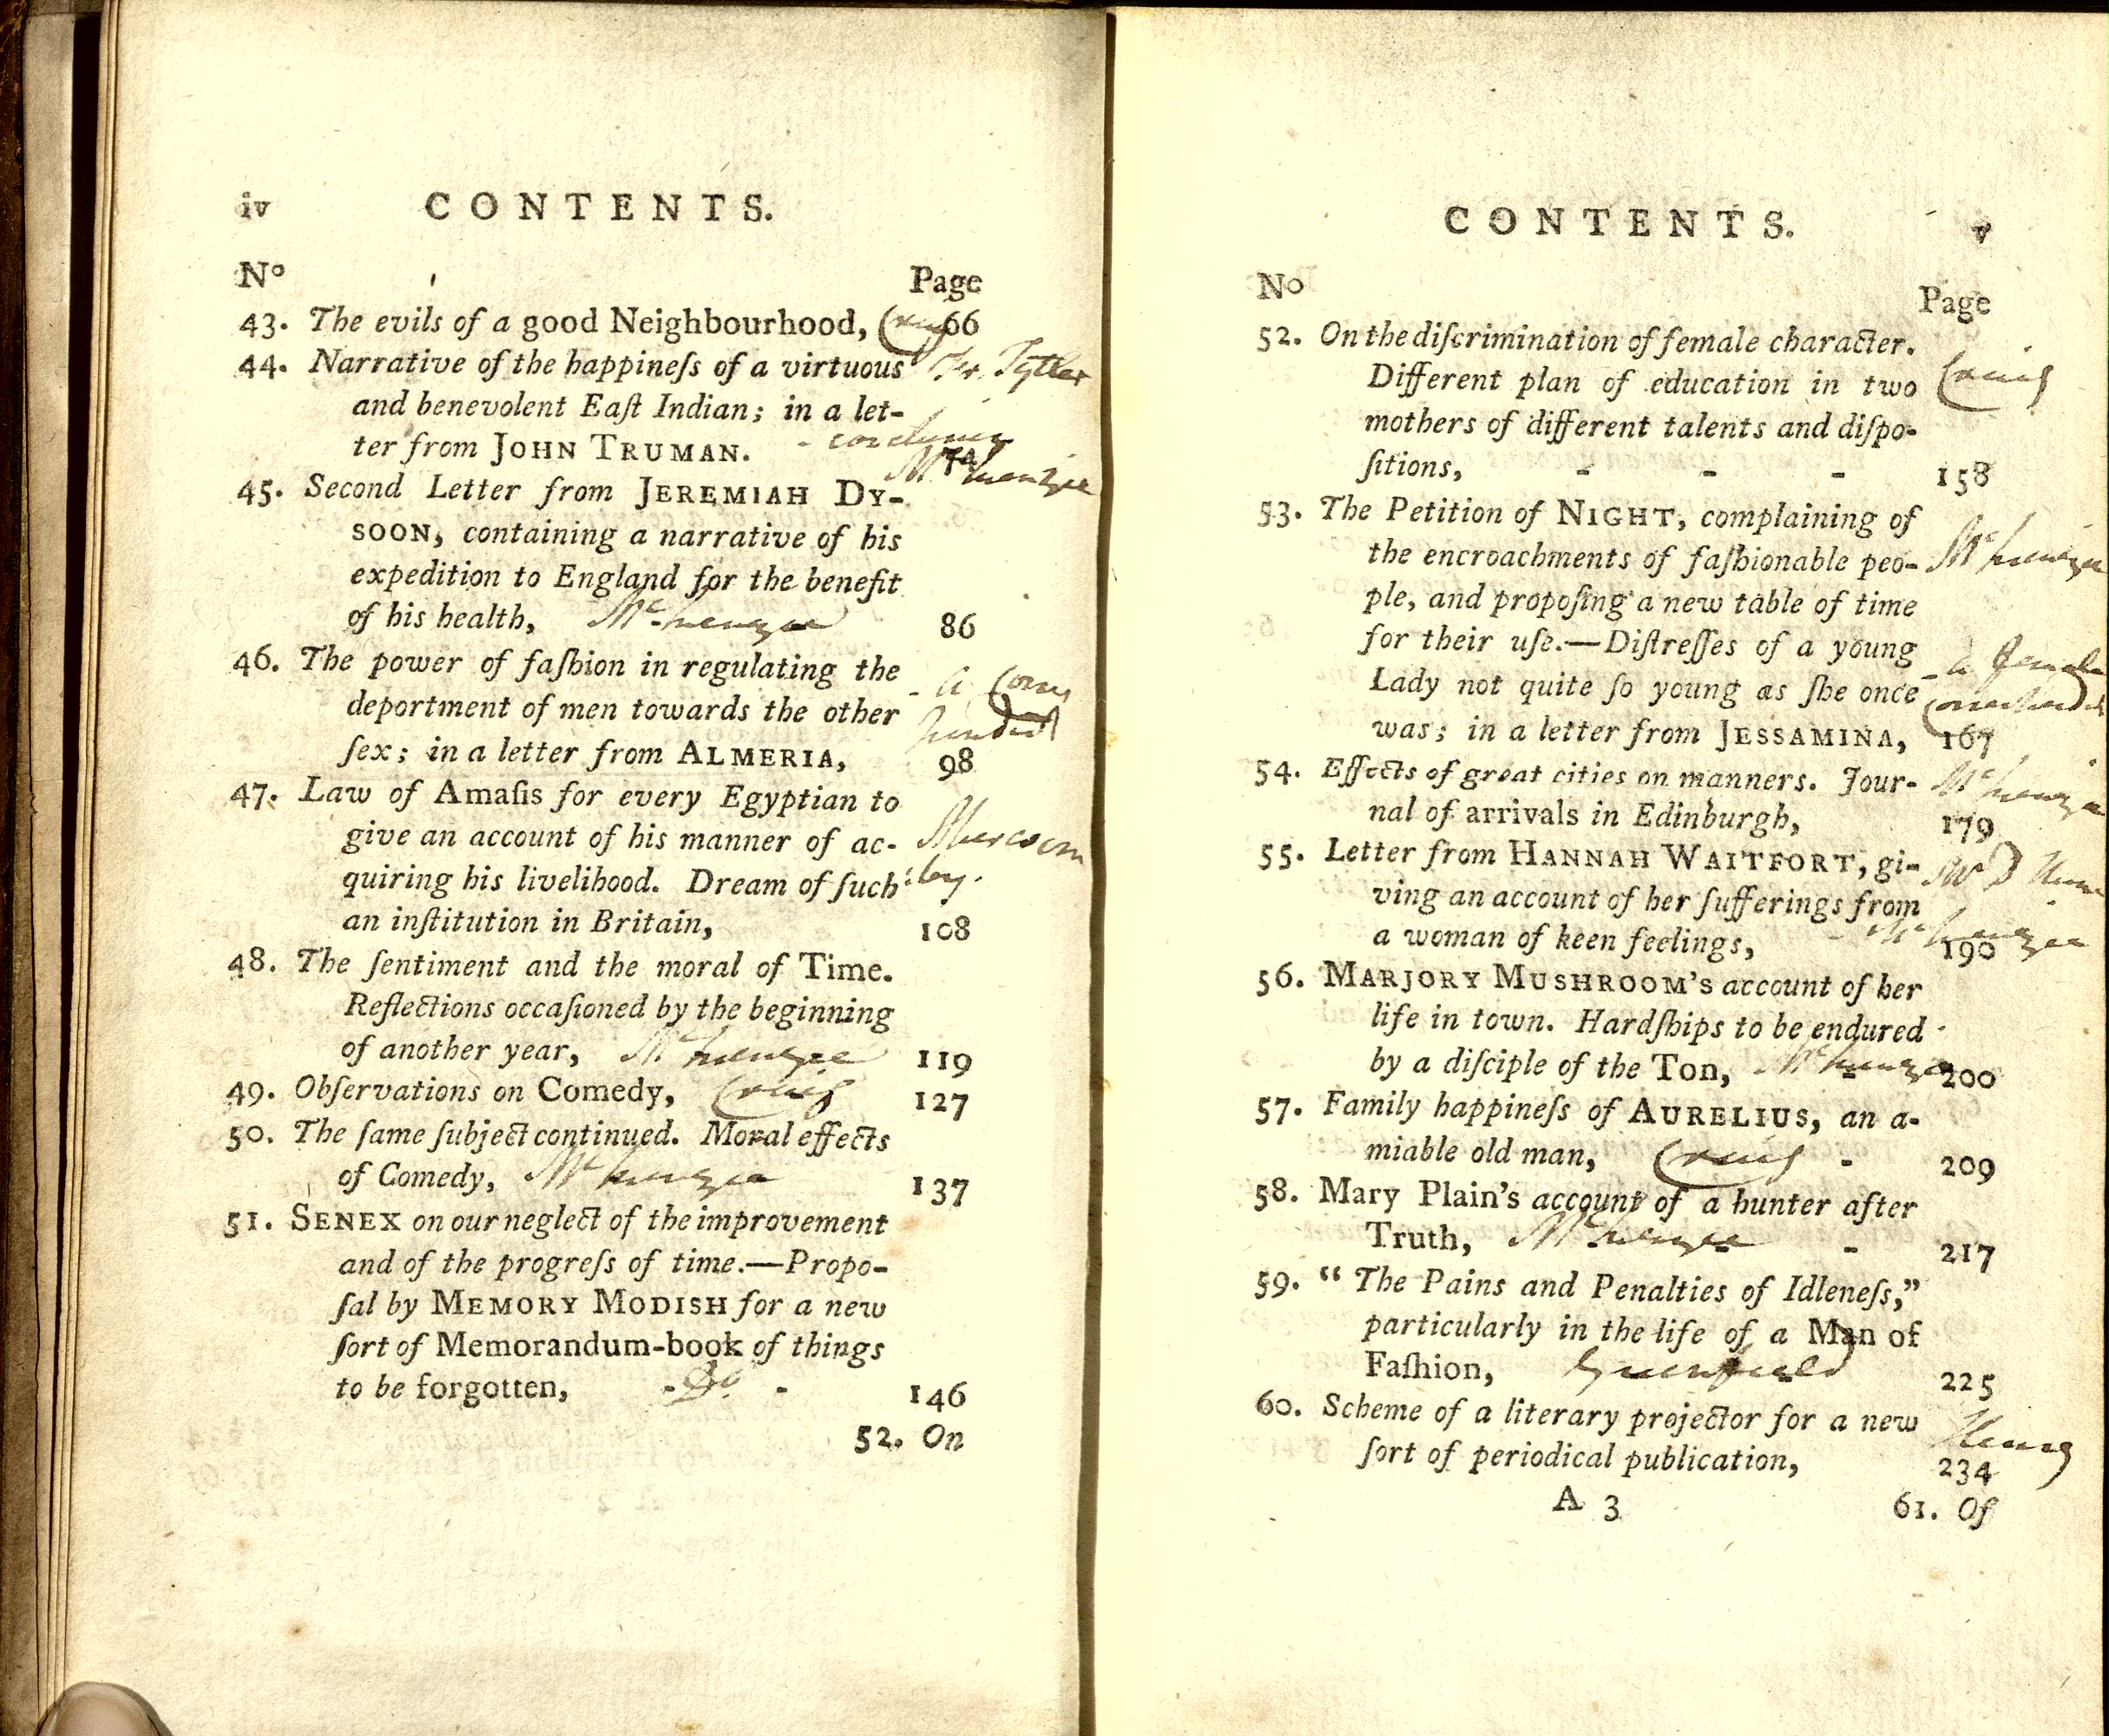 iv CONTENTS.
Nº Page
43. The evils of a good Neighbourhood, Craig 66
44. Narrative of the happineſs of a virtuous Fr. Tytler
and benevolent Eaſt Indian; in a let-
ter from JOHN TRUMAN. - concluding 74
McKenzie
45. Second Letter from JEREMIAH DY-
SOON, containing a narrative of his
expedition to England for the benefit
of his health, McKenzie 86
46. The power of faſhion in regulating the - a Corres
deportment of men towards the other pondent
ſex; in a letter from ALMERIA, 98
47. Law of Amaſis for every Egyptian to
give an account of his manner of ac- Abercrom
quiring his livelihood. Dream of ſuch by.
an inſtitution in Britain, 108
48. The ſentiment and the moral of Time.
Reflections occaſioned by the beginning
of another year, McKenzie 119
49. Obſervations on Comedy, Craig 127
50. The ſame ſubject continued. Moral effects
of Comedy, McKenzie 137
51. SENEX on our neglect of the improvement
and of the progreſs of time.—Propo-
ſal by MEMORY MODISH for a new
ſort of Memorandum-book of things
to be forgotten, - Do. - 146
52. On
CONTENTS. v
No Page
52. On the diſcrimination of female character.
Different plan of education in two Craig
mothers of different talents and diſpo-
ſitions, - - - 158
53. The Petition of NIGHT, complaining of
the encroachments of faſhionable peo- McKenzie
ple, and propoſing a new table of time
for their uſe.—Diſtreſſes of a young - a female
Lady not quite ſo young as ſhe once Correspondent
was; in a letter from JESSAMINA, 167
54. Effects of great cities on manners. Jour- McKenzie
nal of arrivals in Edinburgh, 179
55. Letter from HANNAH WAITFORT, gi- Mr D Hume
ving an account of her ſufferings from
a woman of keen feelings, - McKenzie 190
56. MARJORY MUSHROOM'S account of her
life in town. Hardſhips to be endured
by a diſciple of the Ton, McKenzie - 200
57. Family happineſs of AURELIUS, an a-
miable old man, Craig - 209
58. Mary Plain's account of a hunter after
Truth, McKenzie - 217
59. “ The Pains and Penalties of Idleneſs,”
particularly in the life of a Man of
Faſhion, Greenfield 225
60. Scheme of a literary projector for a new Henry
ſort of periodical publication, 234
A 3 61. Of